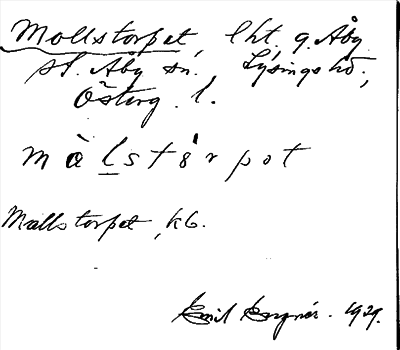 Mollstorpet, lht. g. Åby
st. Åby sn. Lysings hd.,
Österg. l.
m à l s t ó r p o t
Mallstorpet, kb.
Emil 1929.